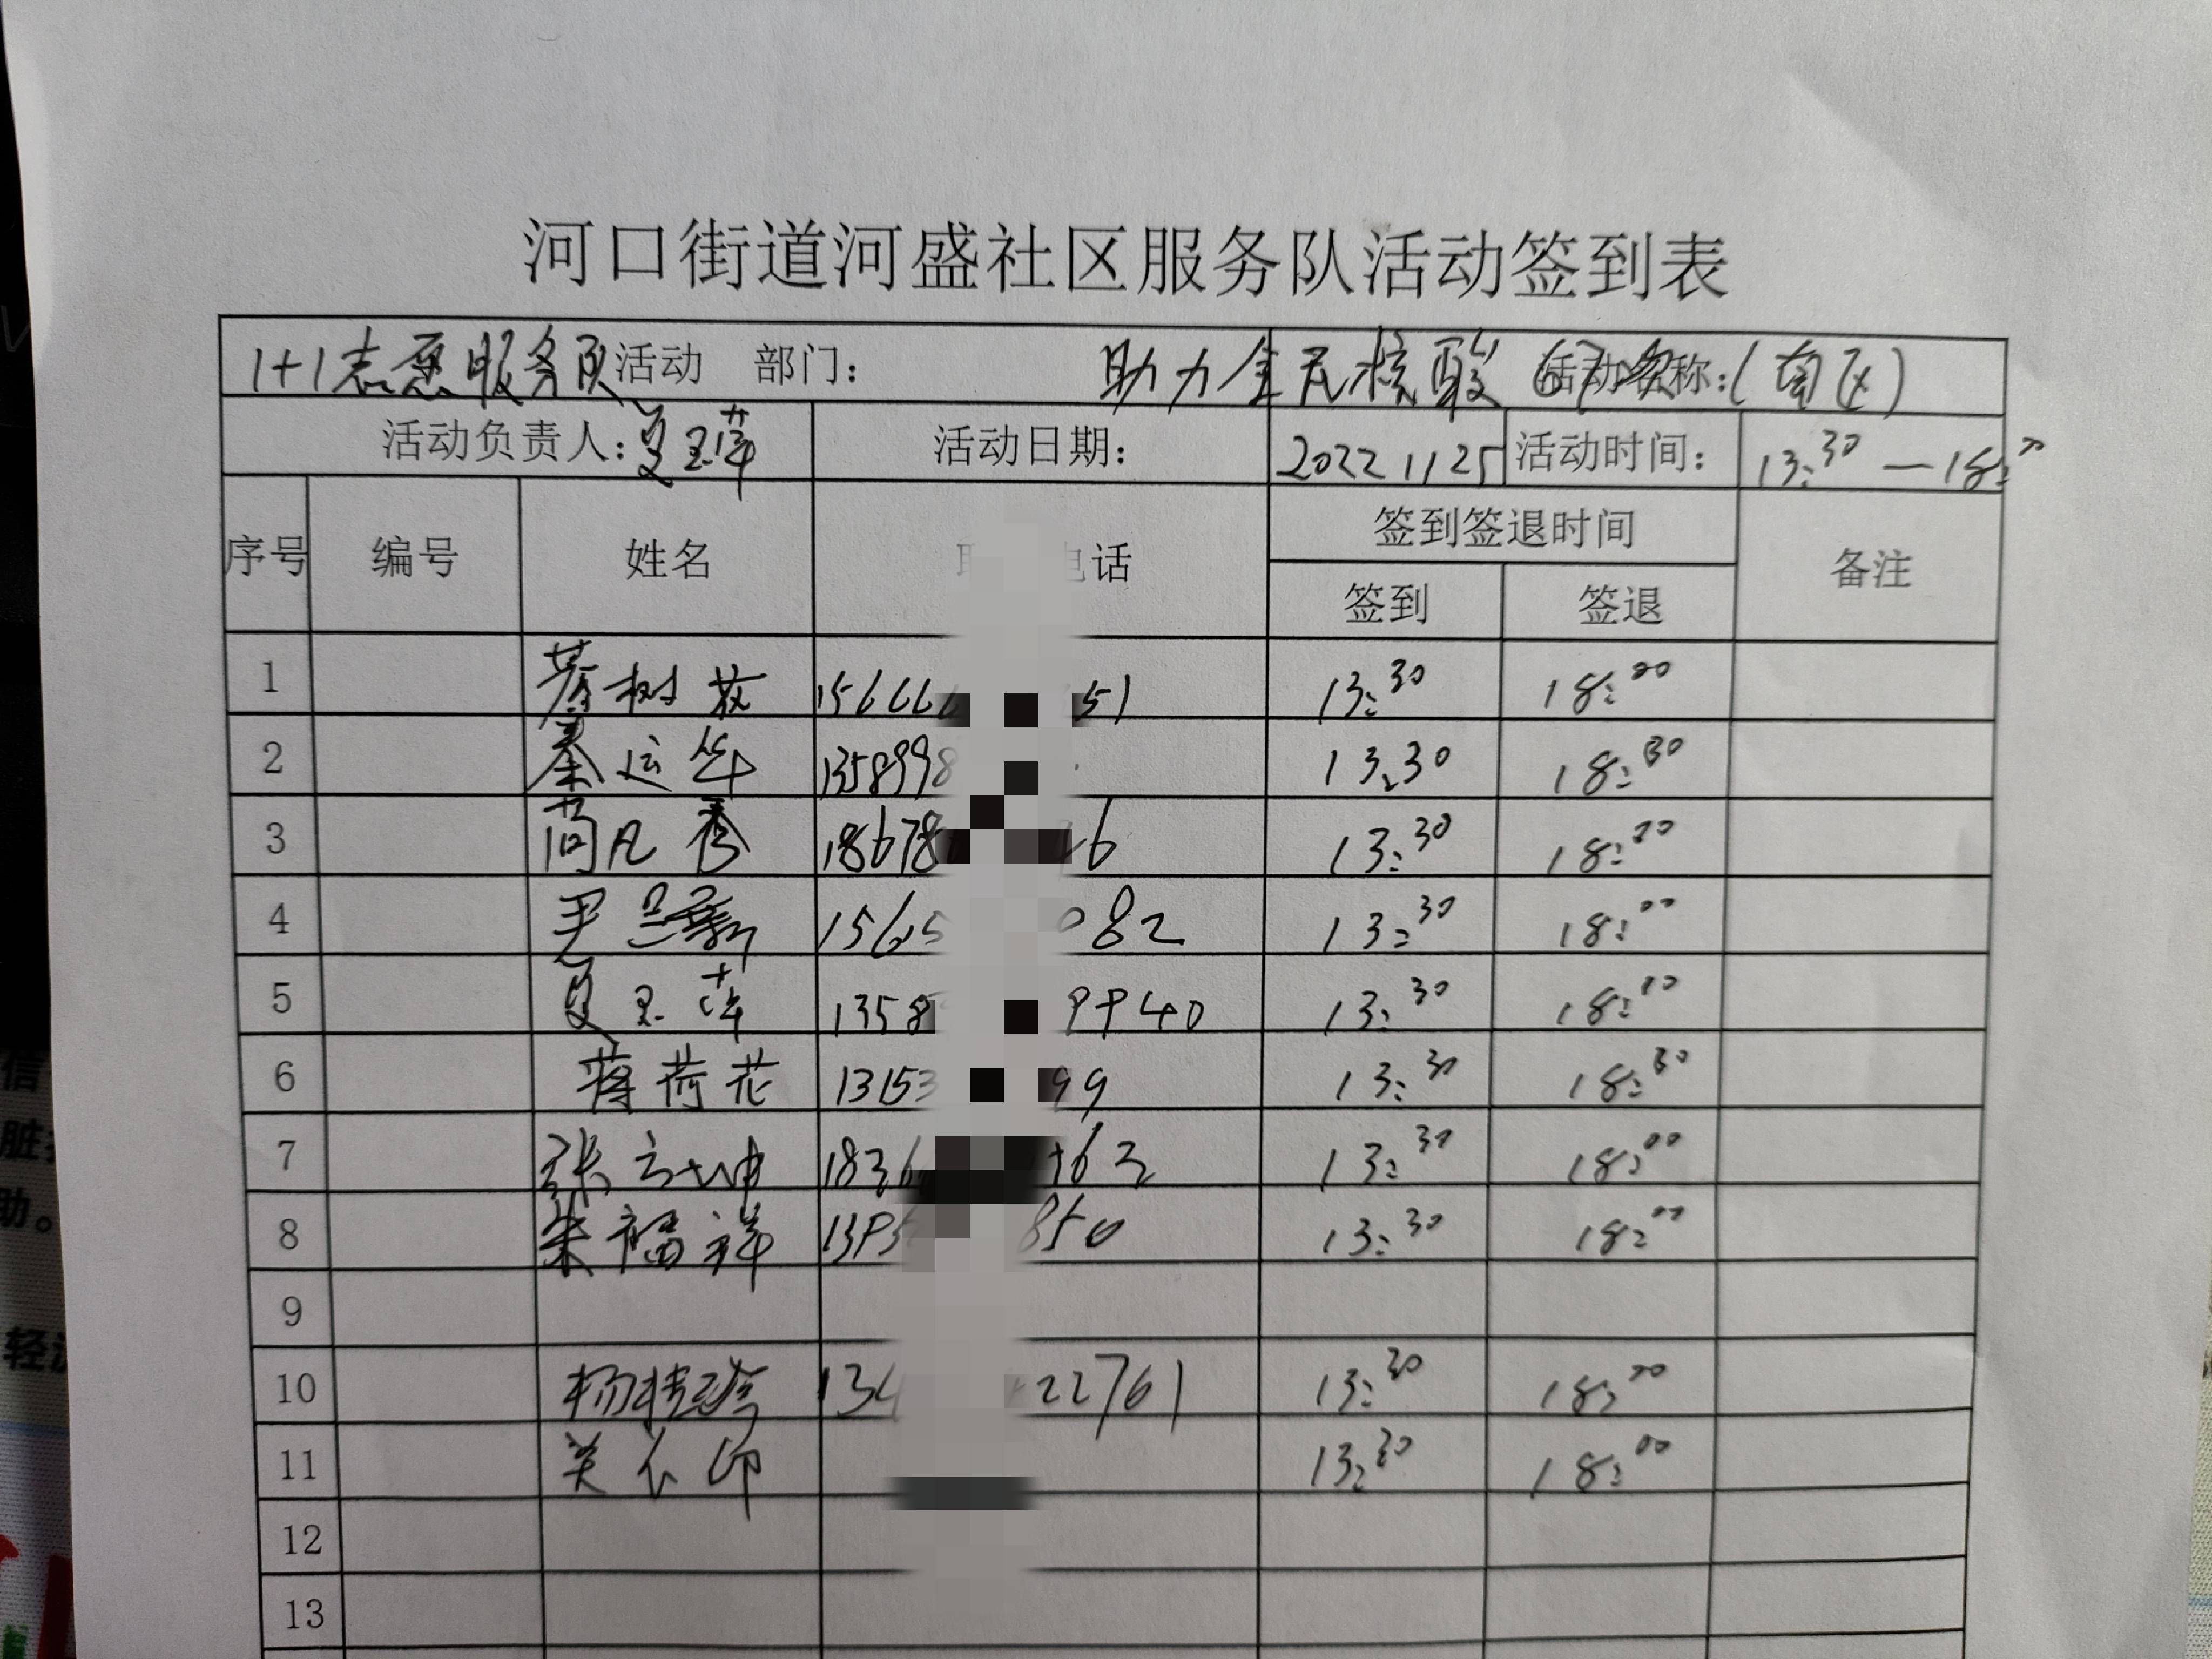 河口街道河盛社区服务队活动签到表
1+1志愿服务队活动 部门： 助力全民核酸 67次 活动名称：(南区)
活动负责人：夏玉萍 活动日期： 2022 11 25 活动时间： 13:30 — 18:00
序号 编号 姓名 电话 签到签退时间 备注
签到 签退
1 綦树 15666 51 13:30 18:00
2 秦运华 1358998 13:30 18:30
3 苟凡秀 18678 6 13:30 18:00
4 尹兰新 15615 082 13:30 18:00
5 夏玉萍 1358 9940 13:30 18:00
6 蒋荷花 13153 99 13:30 18:30
7 张立坤 1836 63 13:30 18:00
8 朱福祥 1395 850 13:30 18:00
9
10 杨桂 134 22761 13:30 18:00
11 13:30 18:00
12
13
信
脏
助。
轻